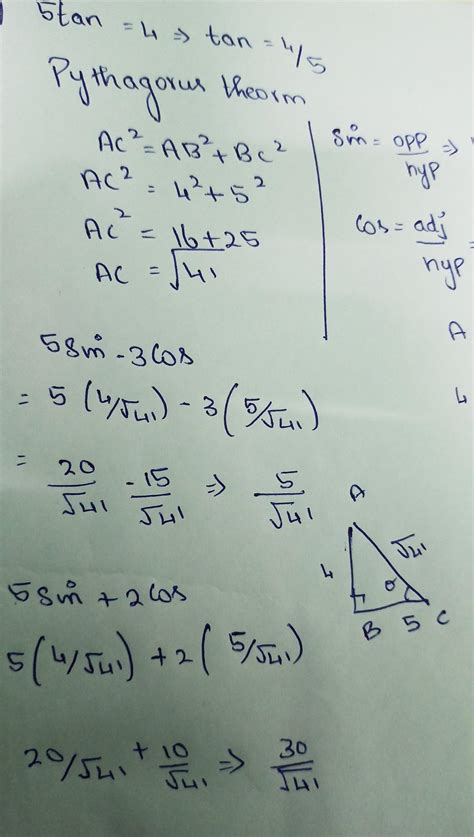 5tan = 4 ⇒ tan = 4/5
Pythagorus theorm
AC² = AB² + BC²
AC² = 4² + 5²
AC² = 16+25
AC = √41
sin = opp/hyp ⇒
cos = adj/hyp =
A
4
5sin - 3cos
= 5 (4/√41) - 3 (5/√41)
= 20/√41 - 15/√41 ⇒ 5/√41
A
√41
4
θ
B 5 C
5sin + 2cos
5(4/√41) + 2(5/√41)
20/√41 + 10/√41 ⇒ 30/√41